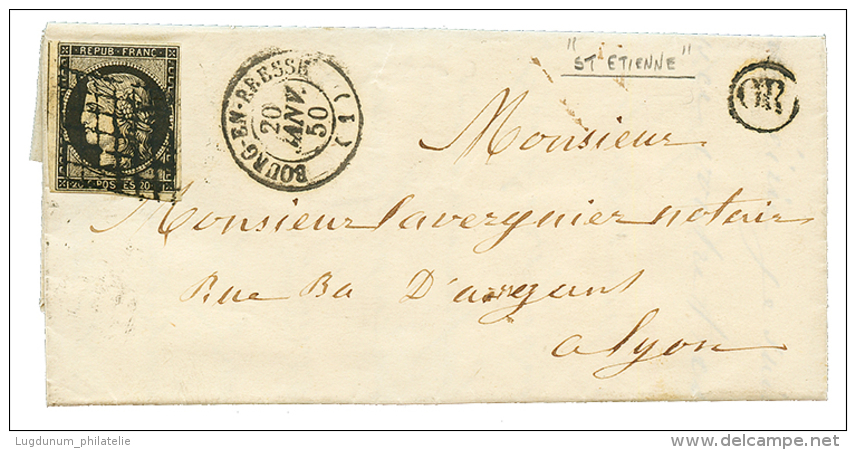 REPUB. FRANC.
20 c POSTES 20 c
BOURG-EN-BRESSE (1)
20
JANV.
50
"ST ETIENNE"
OR
Monsieur
Monsieur lavergnier notair
Rue Ba D'argant
a lyon
Lugdunum_philatelie
delcampe.net